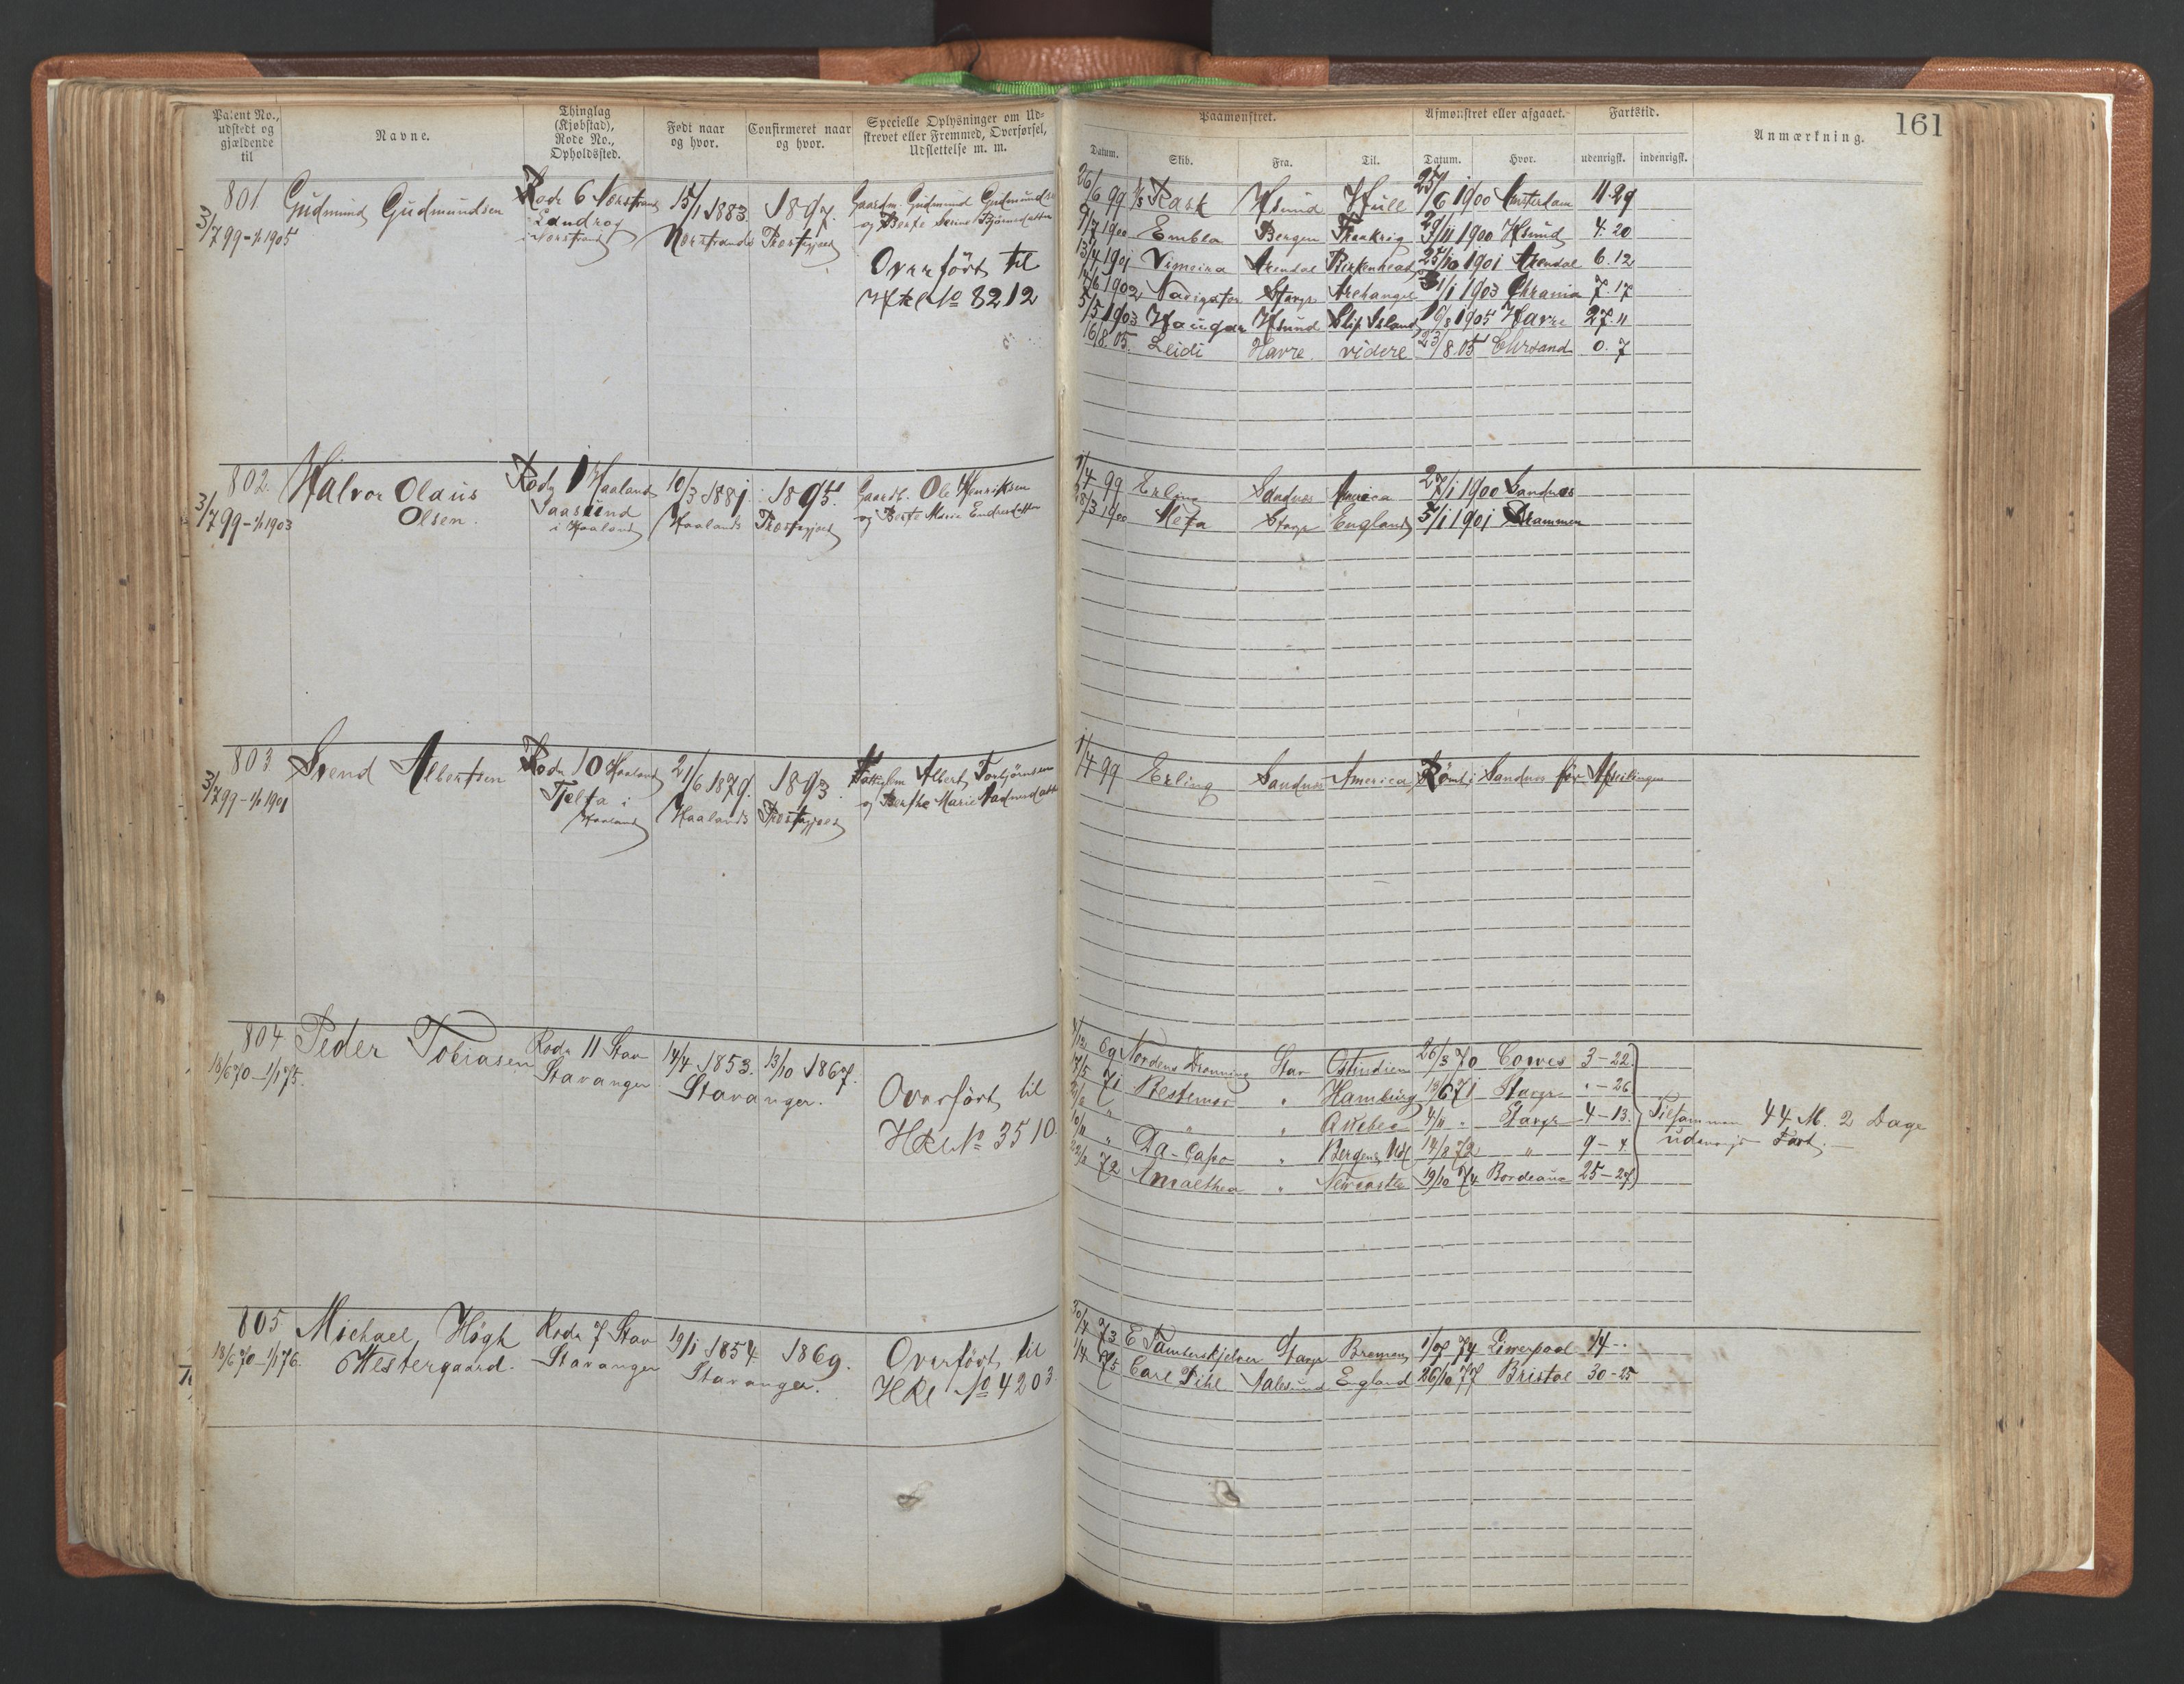 Patent No., udstedt og gjældende til
Navne.
Thinglag (Kjøbstad), Rode No., Opholdssted.
Født naar og hvor.
Confirmeret naar og hvor.
Specielle Oplysninger om Udskrevet eller Fremmed, Overførsel, Udslettelse m. m.
Paamønstret.
Afmønstret eller afgaaet.
Fartstid.
Anmærkning.
161
Datum. Skib. Fra. Til. Datum. Hvor. udenrigsk. indenrigsk.
801 Gudmund Gudmundsen Rode 6 Nerstrand 15/1 1883 1897. Gaardm. Gudmund Gudmunds
3/7 99 - 1/1 1905 Landrog i Nerstrand Nerstrands Præstegjeld og Berte Bjørnsdatter
Overført til
Hkl No 8212
26/6 99 Rask Hsund Hull 25/6 1900 Amsterdam 11.29
9/7 1900 Embla Bergen Frankrig 29/11 1900 Hsund 4.20
13/4 1901 Vimeira Arendal Birkenhead 25/10 1901 Arendal 6.12
14/6 1902 Navigator Stavgr Archangel 31/1 1903 Chrania 7.17
5/5 1903 Haugar Hsund Ship Island 16/8 1905 Havre 27.11
16/8 05. Leidi Havre videre 23/8.05 Chrsand 0.7
802. Halvor Olaus Rode 1 Haaland 10/3 1881 1895. Gaardb. Ole Henriksen
3/7 99 - 1/1 1903 Olsen. i Haaland Haalands Præstegjeld og Berte Marie Endresdatter
1/4 99 Erling Sandnes America 27/1 1900 Sandnes
28/3 1900 Meta Stavgr England 5/1 1901 Drammen
803 Svend Albertsen Rode 10 Haaland 21/6 1879. 1893. Albert Torbjørnsen
3/7 99 - 1/1 1901 Tjelta i Haaland Haalands Præstegjeld og Berthe Marie
1/4 99 Erling Sandnes America Rømt i Sandnes før Afseilingen
804 Peder Tobiasen Rode 11 Stav 14/4 1853. 13/10 1867.
18/6 70 - 1/1 75. Stavanger Stavanger.
Overført til
Hkl No 3510
69 Nordens Dronning Stav Ostindien 26/3 70 Cowes 3-22.
17/5 71 Bestemor " Hamburg 19/6 71 Stavgr " - 26
" " " Quebec 4/11 " Stavgr 4-13.
10/11 " Da-Capo " Bergen 14/8 72 " 9-4
72 Amalthea " Newcastle 19/10 74 Bordeaux 25-27
Tilsammen 44 M. 2 Dage
udenrigs Fart.
805 Michael Høgh Rode 7 Stav 19/1 1854 1869.
18/6 70 - 1/1 76. Westergaard. Stavanger Stavanger.
Overført til
Hkl No 4203
30/4 73 E Stavgr Bremen 74 Liverpool 14 -
1/4 75 Carl Pihl Aalesund England 26/10 77 Bristol 30-25